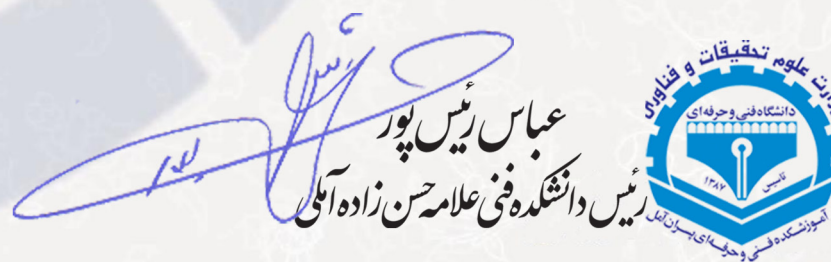 عباس رئیس پور
رئیس دانشکده فنی علامه حسن زاده آملی
وزارت علوم تحقیقات و فناوری
دانشگاه فنی و حرفه ای
تاسیس ۱۳۸۷
آموزشکده فنی و حرفه ای پسران آمل